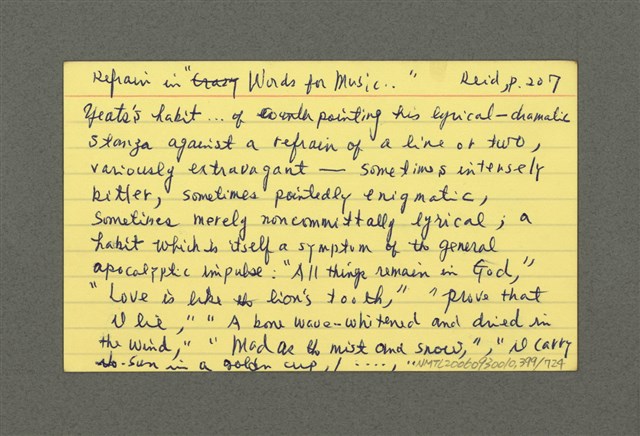 Refrain in "Crazy Words for Music.." Reid, p. 207
Yeats's habit ... of counterpointing his lyrical-dramatic
stanza against a refrain of a line or two,
variously extravagant — sometimes intensely
bitter, sometimes pointedly enigmatic,
sometimes merely noncommittally lyrical; a
habit which is itself a symptom of the general
apocalyptic impulse: "All things remain in God,"
"Love is like the lion's tooth," "prove that
I lie," "A bone wave-whitened and dried in
the wind," "Mad as the mist and snow," "I carry
the sun in a golden cup, / ....,"
NMTL20060930010,399/724